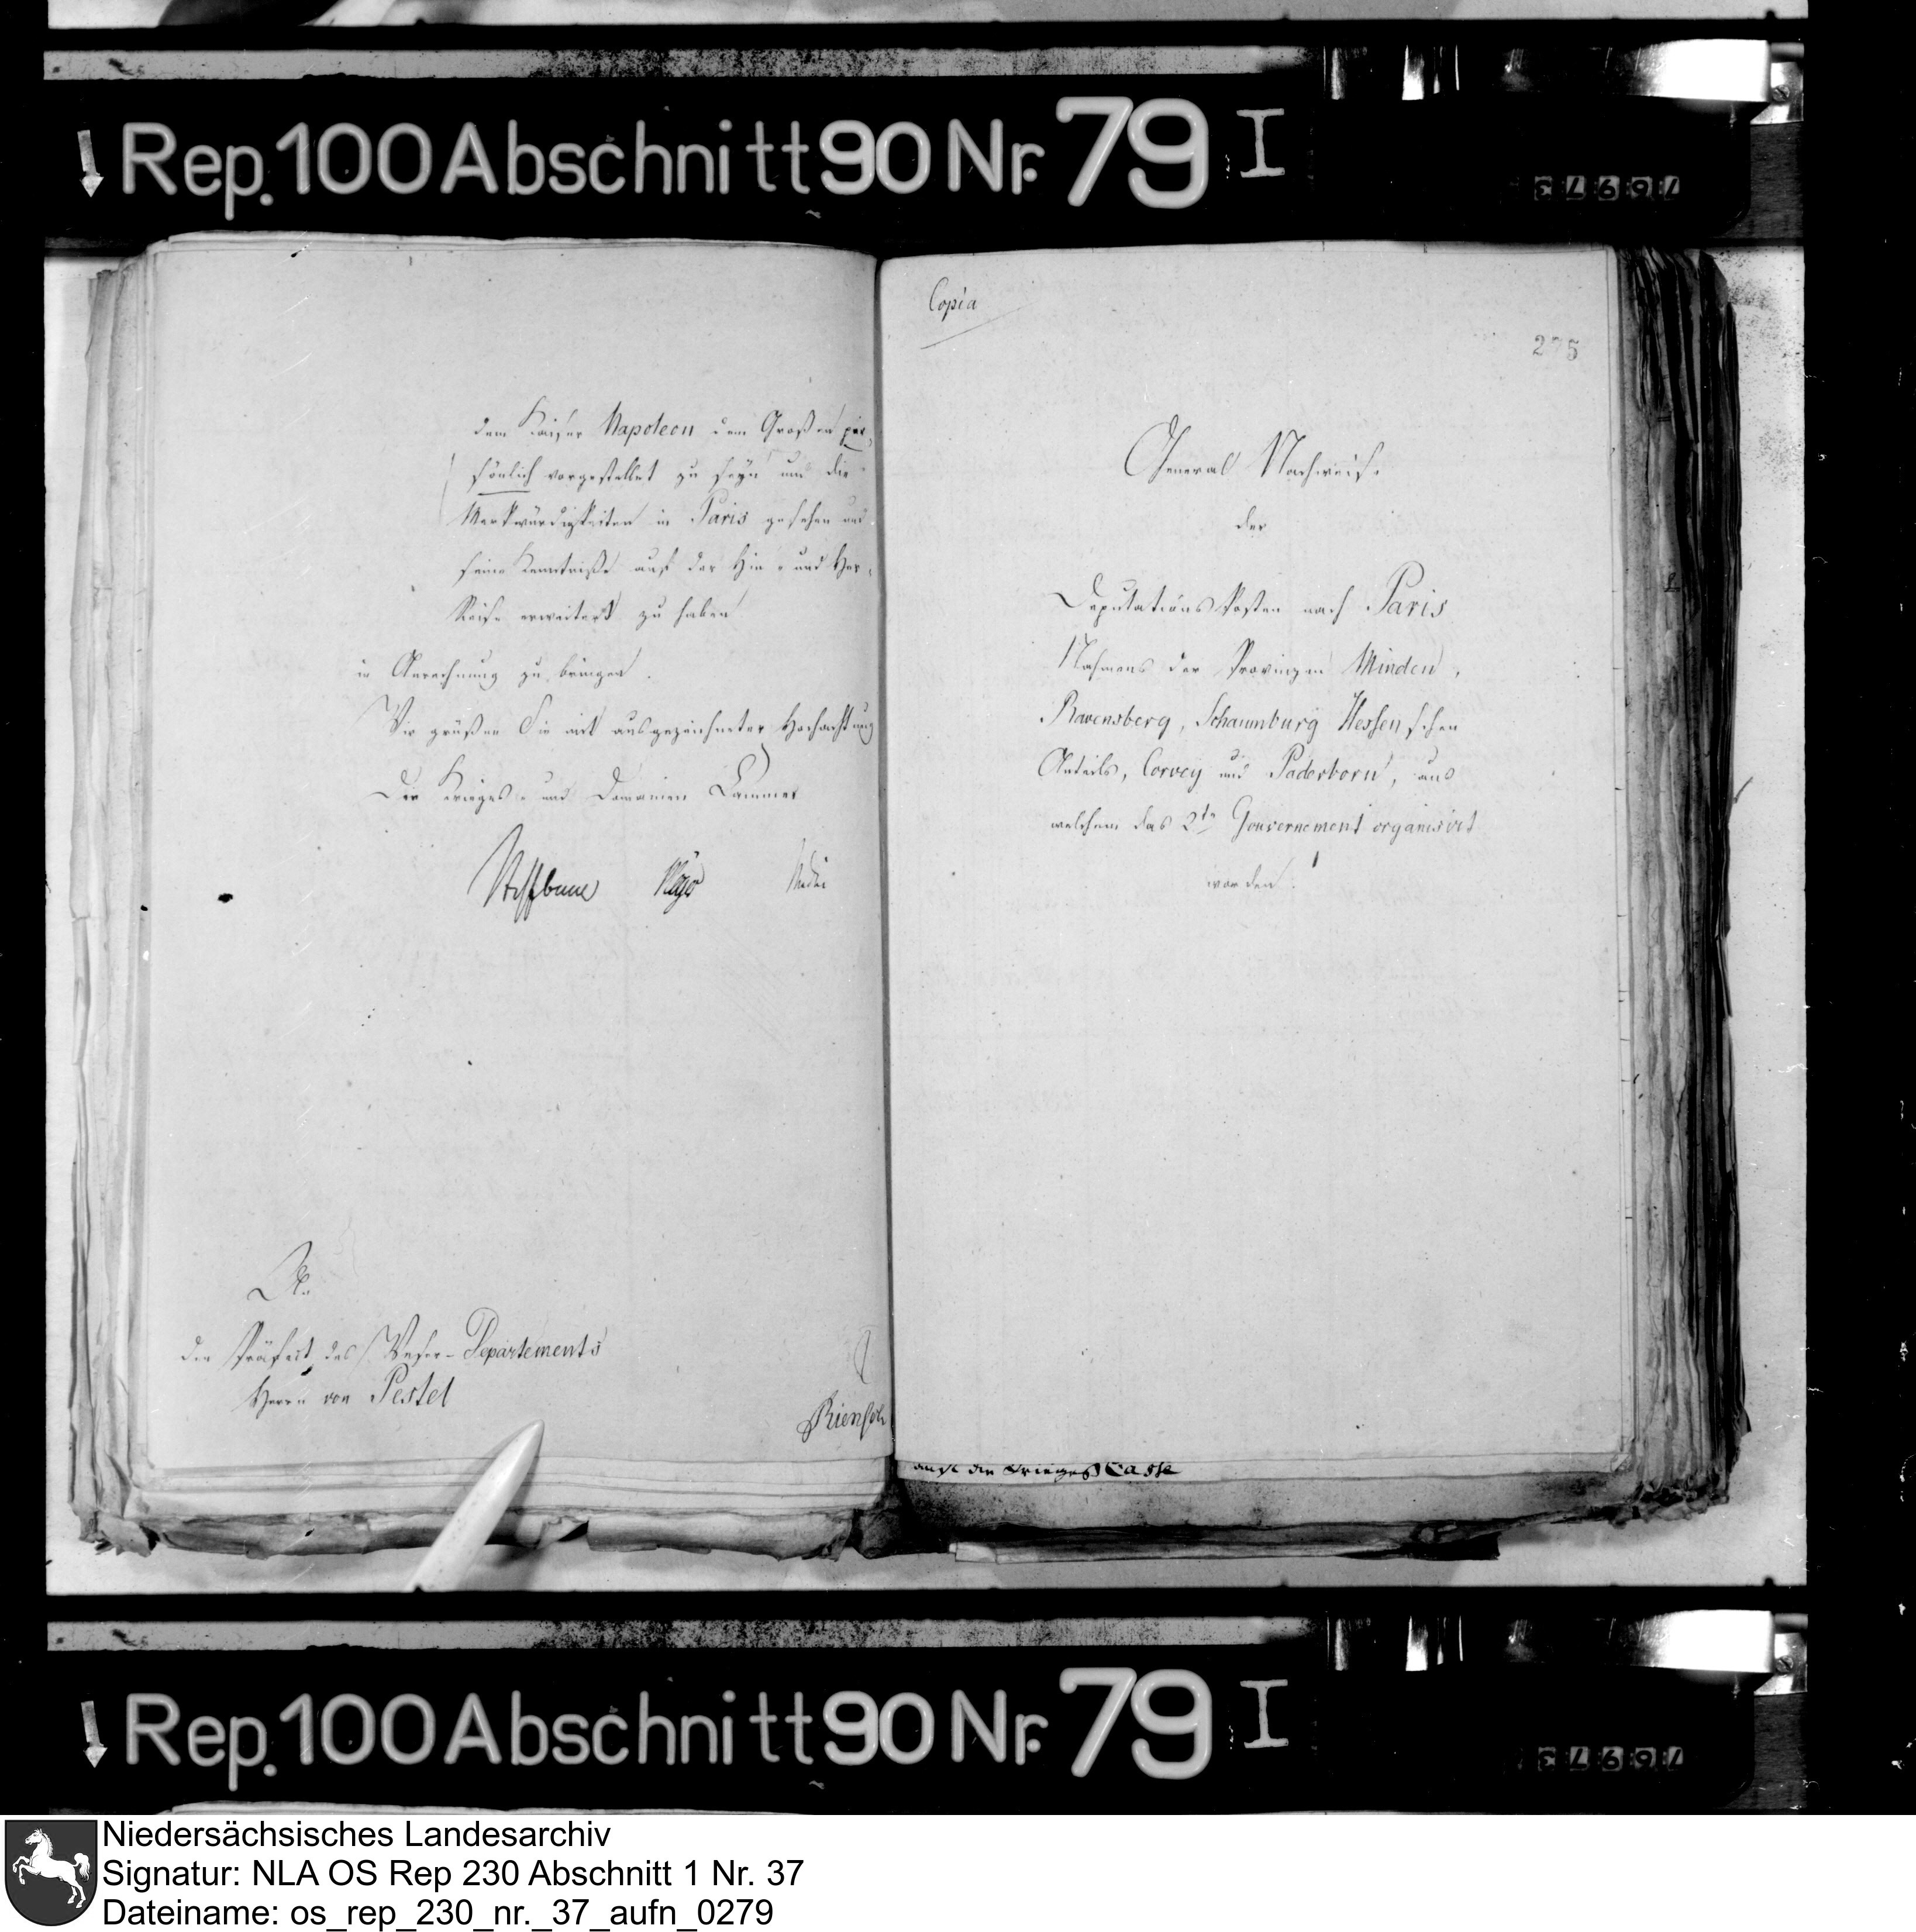 Rep. 100 Abschnitt 90 Nr. 79 I
76973
dem Kaiser Napoleon dem Großen per,
sönlich vorgestellet zu seyn und die
Merkwürdigkeiten in Paris gesehen und
seine Kenntniße auf der Hin- und Her,
Reise erweitert zu haben
in Anrechnung zu bringen.
Wir grüßen Sie mit ausgezeichneter Hochachtung
Die Krieges- und Domainen Cammer
An
den Präfect des Weser-Departements
Herrn von Pestel
Copia
275
General Nachweise
der
Deputations Kosten nach Paris
Nahmens der Provinzen Minden,
Ravensberg, Schaumburg Hessenschen
Antheils, Corvey und Paderborn, aus
welchem das 2te Gouvernement organisirt
worden.
die Krieges Casse
Rep. 100 Abschnitt 90 Nr. 79 I
76973
Niedersächsisches Landesarchiv
Signatur: NLA OS Rep 230 Abschnitt 1 Nr. 37
Dateiname: os_rep_230_nr._37_aufn_0279